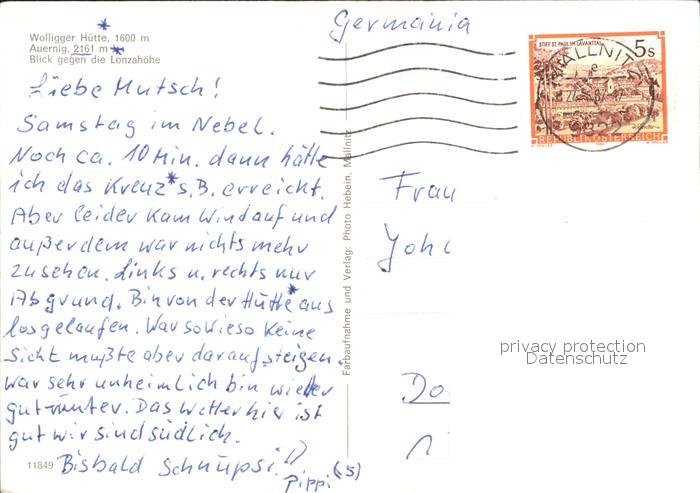 Wolligger Hütte, 1600 m
Auernig, 2161 m
Blick gegen die Lonzahöhe
Germania
STIFT ST. PAUL IM LAVANTTAL
5s
MALLNITZ
REPUBLIK ÖSTERREICH
Liebe Mutsch!
Samstag im Nebel.
Noch ca. 10 Min. dann hätte
ich das Kreuz* s.B. erreicht.
Aber leider kam Wind auf und
außerdem war nichts mehr
zu sehen. Links u. rechts nur
Abgrund. Bin von der Hütte* aus
losgelaufen. War sowieso keine
Sicht mußte aber darauf steigen.
War sehr unheimlich bin wieder
gut runter. Das Wetter hier ist
gut wir sind südlich.
Bisbald Schnupsi
Pippi (s)
11849
Farbaufnahme und Verlag: Photo Hebein, Mallnitz
Frau
Joh
Do
privacy protection
Datenschutz